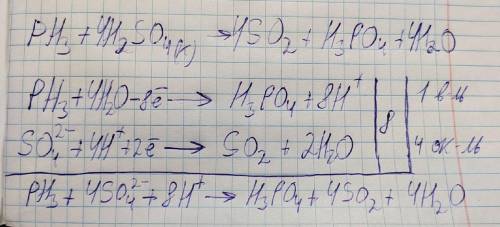 PH₃ + 4H₂SO₄(к) → 4SO₂ + H₃PO₄ + 4H₂O
PH₃ + 4H₂O - 8ē → H₃PO₄ + 8H⁺ | 8 | 1 в-ль
SO₄²⁻ + 4H⁺ + 2ē → SO₂ + 2H₂O | 4 ок-ль
PH₃ + 4SO₄²⁻ + 8H⁺ → H₃PO₄ + 4SO₂ + 4H₂O